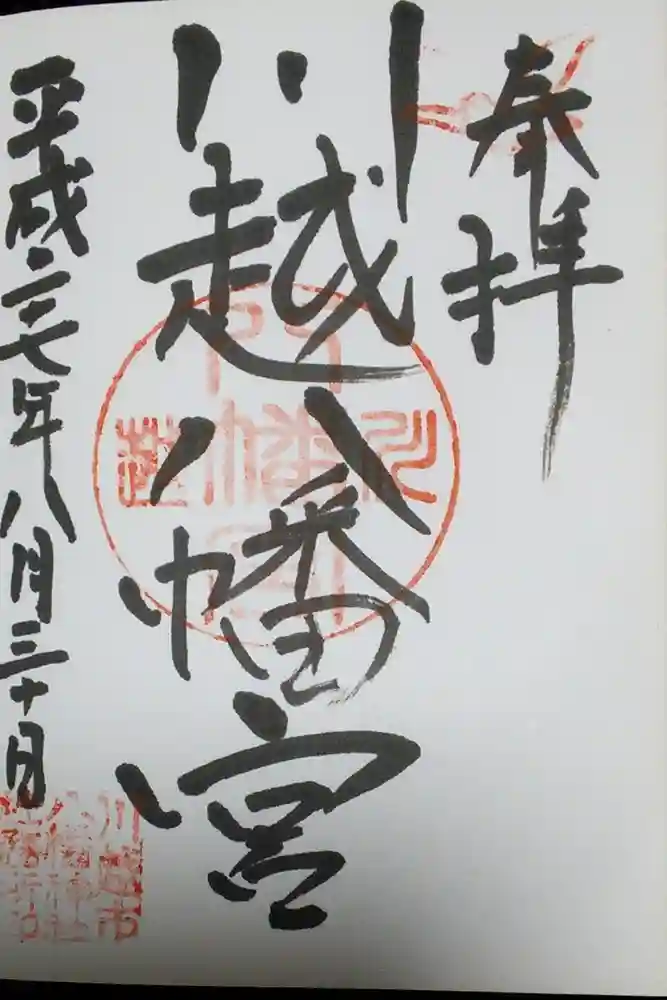 奉拝
川越八幡宮
平成二七年八月三十日